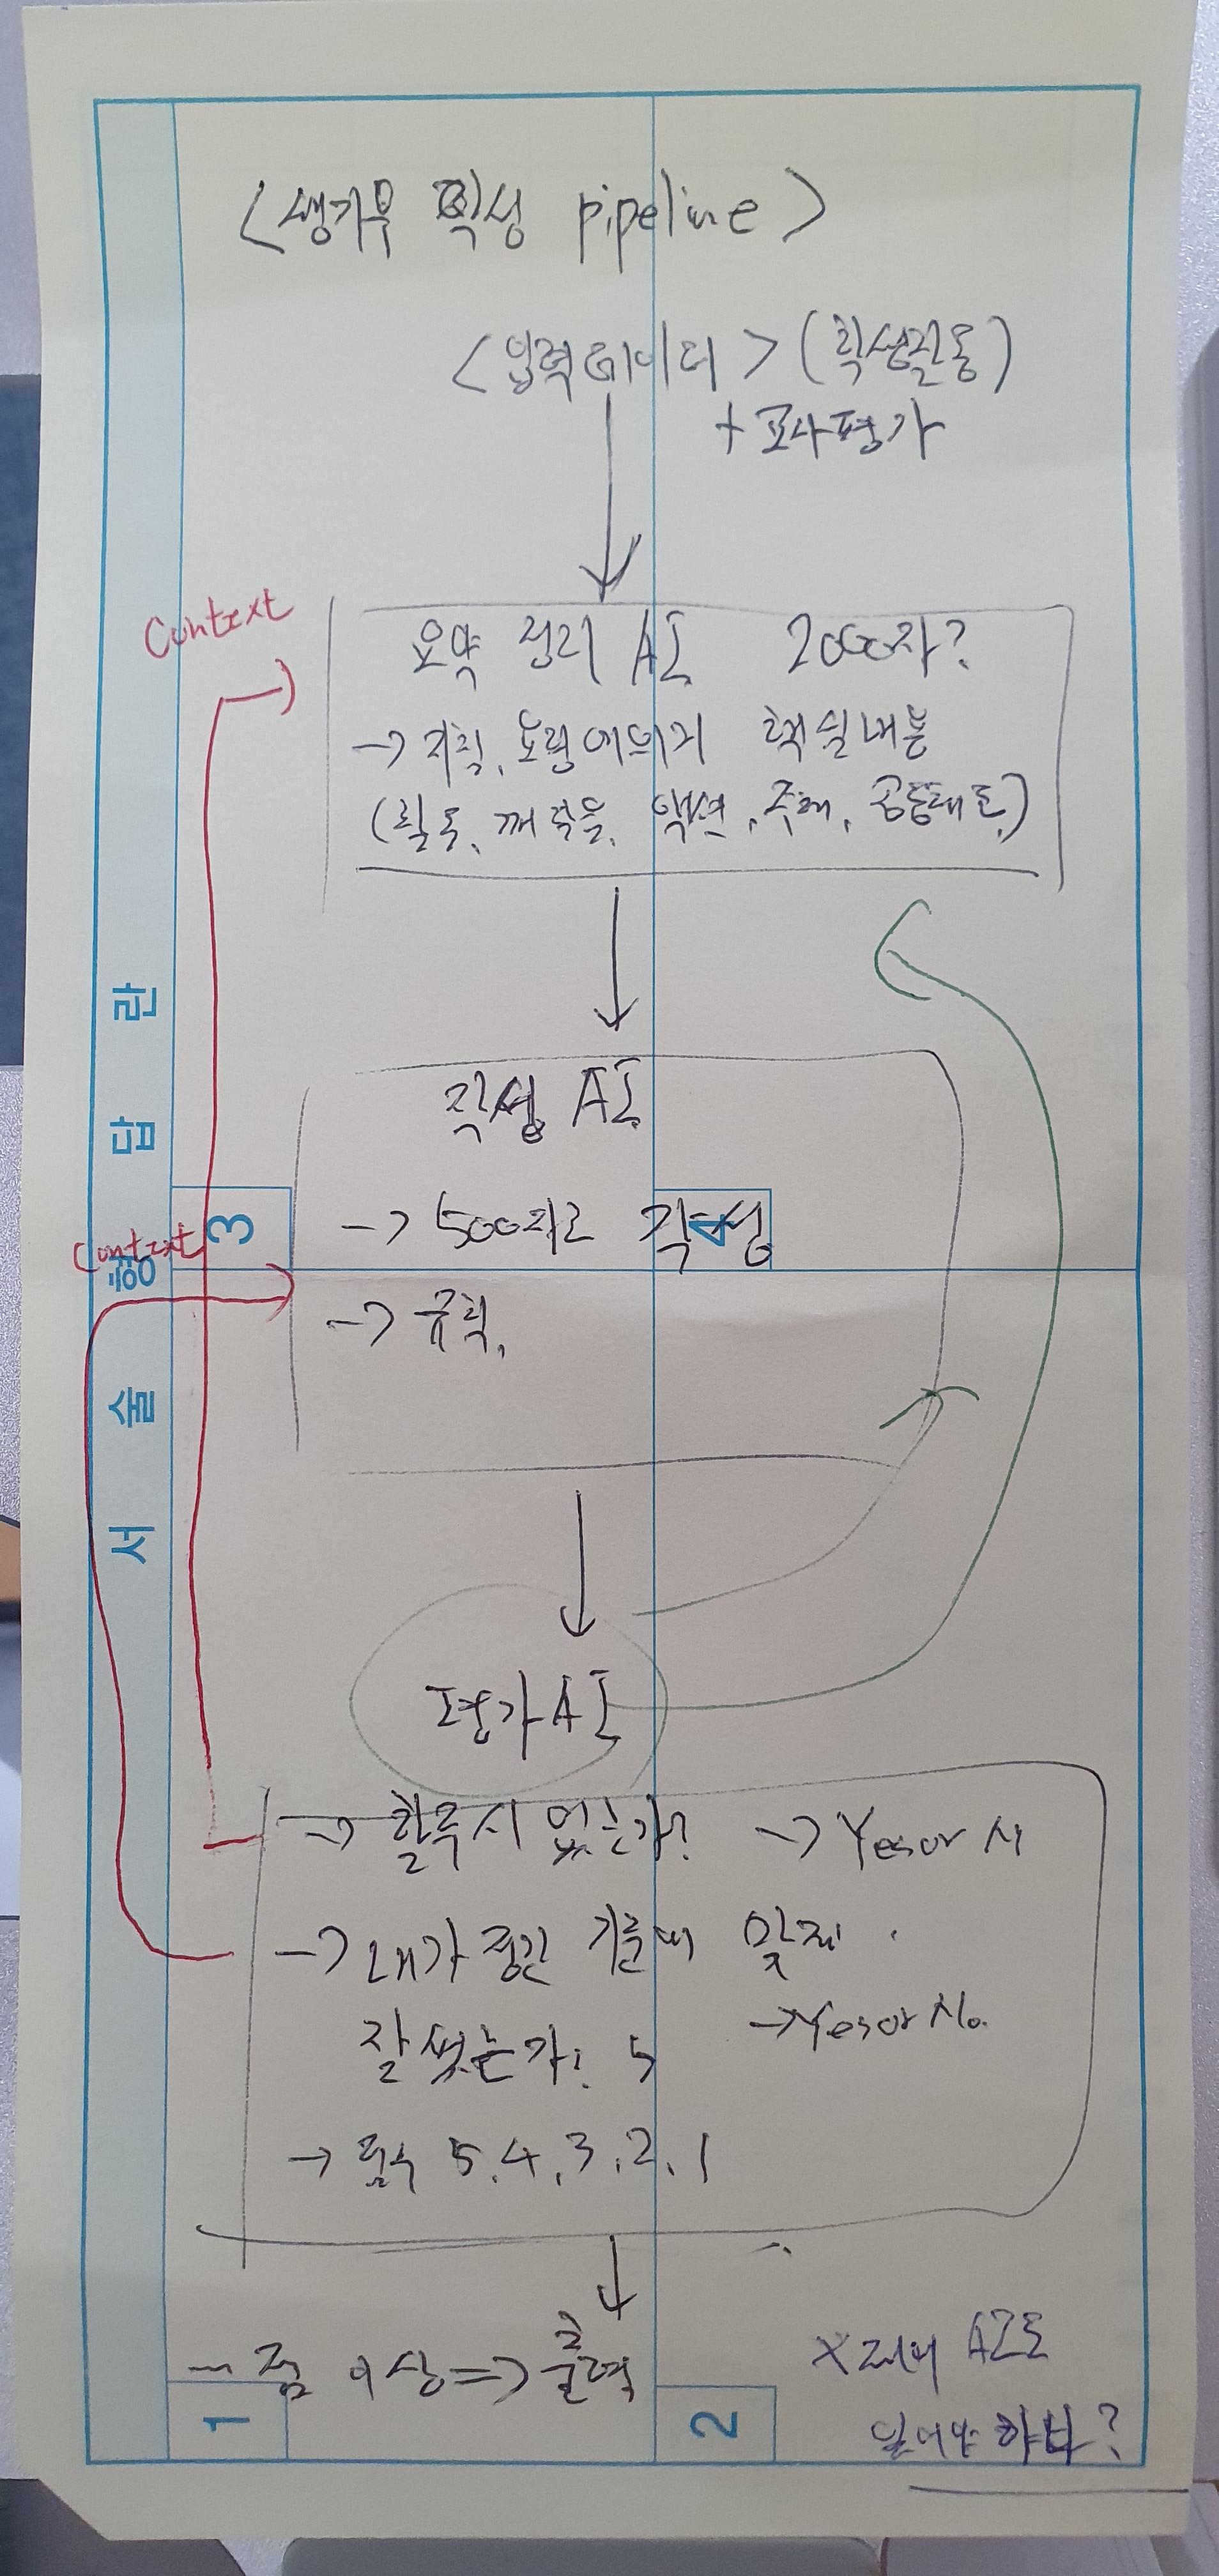 <생기부 작성 pipeline>
<입력데이터> (학생활동)
+ 교사평가
Context
요약 정리 AI 2000자?
→ 규칙, 요령에 의거 핵심내용
(활동, 깨달음, 역량, 주제, 공동체 등)
작성 AI
→ 500자로 작성
Context
→ 규칙,
평가 AI
→ 할루시 없는가? → Yes or N
→ 내가 정한 기준에 맞제
→ Yes or No.
잘 썼는가? 5
→ 점수 5, 4, 3, 2, 1
~ 점 이상 => 출력
AI도
있어야 하나?
서 술 형 답 란
1
2
3
4